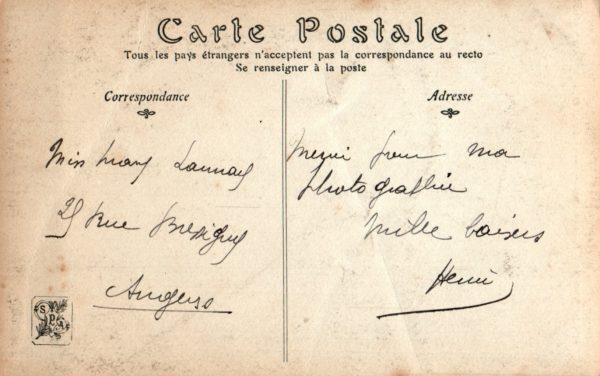 Carte Postale
Tous les pays étrangers n'acceptent pas la correspondance au recto
Se renseigner à la poste
Correspondance
Adresse
Miss Mary Launay
25 Rue Bressigny
Angers
Merci pour ma
photographie
mille baisers
Henri
S
P
A